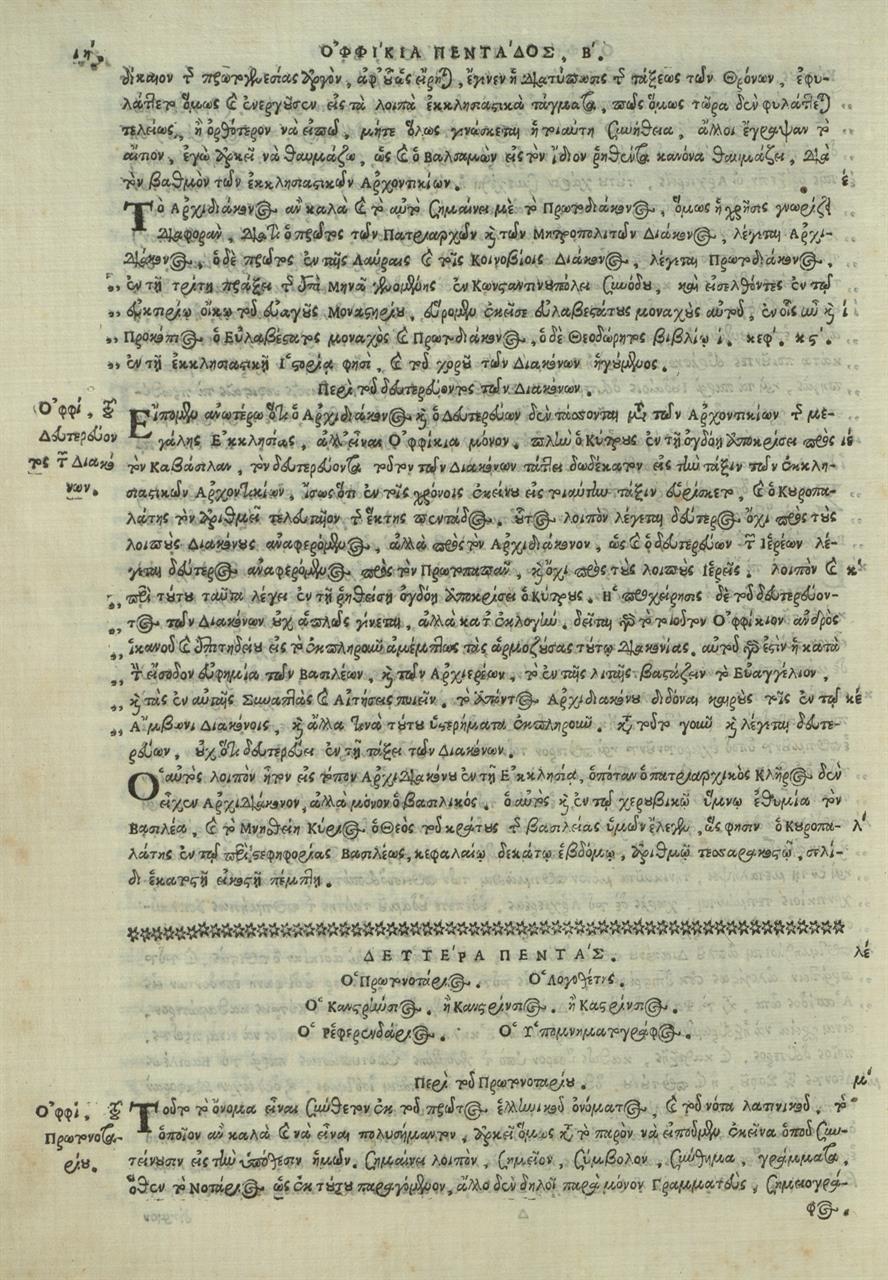 ιη΄. ΟΦΦΙΚΙΑ ΠΕΝΤΑΔΟΣ, Β΄.
δίκαιον τῆς πρωτοθρονίας ἔργον, ἀφ' οὗ ὡς εἴρηται, ἔγινεν ἡ διατύπωσις τῆς τάξεως τῶν Θρόνων, ἐφυ-
λάττετο ὅμως καὶ ἐνεργοῦσεν εἰς τὰ λοιπὰ ἐκκλησιαστικὰ τάγματα, πῶς ὅμως τῶρα δὲν φυλάττεται
τελείως, ἢ ὀρθότερον νὰ εἰπῶ, μήτε ὅλως γινώσκεται ἡ τοιαύτη συνήθεια, ἄλλοι ἔγραψαν τὸ
αἴτιον, ἐγὼ ἀρκεῖ νὰ θαυμάζω, ὡς καὶ ὁ Βαλσαμὼν εἰς τὸν ἴδιον ῥηθέντα κανόνα θαυμάζει, διὰ
τὸν βαθμὸν τῶν ἐκκλησιαστικῶν Ἀρχοντικίων. έ
Τὸ Ἀρχιδιάκονος ἂν καλὰ καὶ τὸ αὐτὸ σημαίνει μὲ τὸ Πρωτοδιάκονος, ὅμως ἡ χρῆσις γνωρίζει
διαφοράν, διατὶ ὁ πρῶτος τῶν Πατριαρχῶν καὶ τῶν Μητροπολιτῶν Διάκονος, λέγεται Ἀρχι-
διάκονος, ὁ δὲ πρῶτος ἐν ταῖς Λαύραις καὶ τοῖς Κοινοβίοις Διάκονος, λέγεται Πρωτοδιάκονος.
,, ἐν τῇ τρίτῃ πράξει τῆς ἐπὶ Μηνᾶ γενομένης ἐν Κωνσταντινουπόλει Συνόδου, καὶ εἰσελθόντες ἐν τῷ
,, εὐκτηρίῳ οἴκῳ τοῦ εὐαγοῦς Μοναστηρίου, εὕρομεν ἐκεῖσε εὐλαβεστάτους μοναχοὺς αὐτοῦ, ἐν οἷς ἦν καὶ ί
,, Προκόπιος ὁ Εὐλαβέστατος μοναχὸς καὶ Πρωτοδιάκονος, ὁ δὲ Θεοδώρητος βιβλίῳ ί. κεφ΄. κς΄.
,, ἐν τῇ ἐκκλησιαστικῇ Ἱστορίᾳ φησὶ, καὶ τοῦ χοροῦ τῶν Διακόνων ἡγούμενος.
Περὶ τοῦ δευτερεύοντος τῶν Διακόνων.
Ὀφφί, τοῦ
Δευτερεύον
τος τῶν Διακό
νων.
Εἴπομεν ἀνωτέρω ὅτι ὁ Ἀρχιδιάκονος καὶ ὁ Δευτερεύων δὲν τάσσονται μετὰ τῶν Ἀρχοντικίων τῆς με-
γάλης Ἐκκλησίας, ἀλλὰ εἶναι Ὀφφίκια μόνον. πλὴν ὁ Κύτρους ἐν τῇ ὀγδόῃ ἀποκρίσει πρὸς ιέ
τὸν Καβάσιλαν, τὸν δευτερεύοντα τοῦτον τῶν Διακόνων τάττει δωδέκατον εἰς τὴν τάξιν τῶν ἐκκλη-
σιαστικῶν Ἀρχοντικίων, ἴσως ὅτι ἐν τοῖς χρόνοις ἐκείνου εἰς τοιαύτην τάξιν εὑρίσκετο, καὶ ὁ Κυροπα-
λάτης τὸν ἀριθμεῖ τελευταῖον τῆς ἕκτης πεντάδος. οὗτος λοιπὸν λέγεται δεύτερος ὄχι πρὸς τοὺς
λοιποὺς Διακόνους ἀναφερόμενος, ἀλλὰ πρὸς τὸν Ἀρχιδιάκονον, ὡς καὶ ὁ δευτερεύων τῶν Ἱερέων λέ-
γεται δεύτερος ἀναφερόμενος πρὸς τὸν Πρωτοπαπᾶν, καὶ ὄχι πρὸς τοὺς λοιποὺς Ἱερεῖς. λοιπὸν καὶ κ΄
,, περὶ τούτου ταῦτα λέγει ἐν τῇ ῥηθείσῃ ὀγδόῃ ἀποκρίσει ὁ Κύτρους. Ἡ προχείρησις δὲ τοῦ δευτερεύον-
,, τος τῶν Διακόνων οὐχ ἁπλῶς γίνεται, ἀλλὰ κατ' ἐκλογήν. δεῖται γὰρ τὸ τοιοῦτον Ὀφφίκιον ἀνδρὸς
,, ἱκανοῦ καὶ ἐπιτηδείου εἰς τὸ ἐκπληροῦν ἀμέμπτως τὰς ἁρμοζούσας τούτῳ Διακονίας. αὐτοῦ γάρ ἐστιν ἡ κατὰ
,, τὴν εἴσοδον εὐφημία τῶν Βασιλέων, καὶ τῶν Ἀρχιερέων, τὸ ἐν ταῖς λιταῖς βαστάζειν τὸ Εὐαγγέλιον,
,, καὶ τὰς ἐν αὐταῖς Συναπτὰς καὶ Αἰτήσεις ποιεῖν. τὸ ἀπόντος Ἀρχιδιακόνου διδόναι καιροὺς τοῖς ἐν τῷ κέ
,, Ἄμβωνι Διακόνοις, καὶ ἄλλα τινὰ τούτου ὑστερήματα ἐκπληροῦν. κατὰ τοῦτο γοῦν καὶ λέγεται δευτε-
ρεύων, οὐχ ὅτι δευτερεύει ἐν τῇ τάξει τῶν Διακόνων.
Ὁ αὐτὸς λοιπὸν ἦτον εἰς τόπον Ἀρχιδιακόνου ἐν τῇ Ἐκκλησίᾳ, ὁπόταν ὁ πατριαρχικὸς Κλῆρος δὲν
εἶχεν Ἀρχιδιάκονον, ἀλλὰ μόνον ὁ βασιλικός. ὁ αὐτὸς καὶ ἐν τῷ χερουβικῷ ὕμνῳ ἐθυμία τὸν
Βασιλέα, καὶ τὸ Μνησθείη Κύριος ὁ Θεὸς τοῦ κράτους τῆς βασιλείας ὑμῶν ἔλεγεν, ὥς φησιν ὁ Κυροπα- λ΄
λάτης ἐν τῷ περὶ στεφηφορίας Βασιλέως, κεφαλαίῳ δεκάτῳ ἑβδόμῳ, ἀριθμῷ τεσσαρακοστῷ, σελί-
δι ἑκατοστῇ εἰκοστῇ πέμπτῃ.
ΔΕΥΤΕΡΑ ΠΕΝΤΑΣ. λέ
Ὁ Πρωτονοτάριος. Ὁ Λογοθέτης.
Ὁ Κανστρίνσιος. ἢ Κανστρίνσιος. ἢ Καστρίνσιος.
Ὁ Ῥεφερενδάριος. Ὁ Ὑπομνηματογράφος.
Περὶ τοῦ Πρωτονοταρίου. μ΄
Ὀφφί, τοῦ
Πρωτονοτα-
ρίου.
Τοῦτο τὸ ὄνομα εἶναι σύνθετον ἐκ τοῦ πρῶτος ἑλληνικοῦ ὀνόματος, καὶ τοῦ νότα λατινικοῦ. τὸ
ὁποῖον ἂν καλὰ καὶ νὰ εἶναι πολυσήμαντον, ἀρκεῖ ὅμως κατὰ τὸ παρὸν νὰ εἰποῦμεν ἐκεῖνα ὁποῦ συν-
τείνουσιν εἰς τὴν ὑπόθεσιν ἡμῶν. σημαίνει λοιπὸν, σημεῖον, σύμβολον, σύνθημα, γράμματα,
ὅθεν τὸ Νοτάριος ὡς ἐκ τούτου παραγόμενον, ἄλλο δὲν δηλοῖ παρὰ μόνον Γραμματεύς, σημειογρά-
φος.